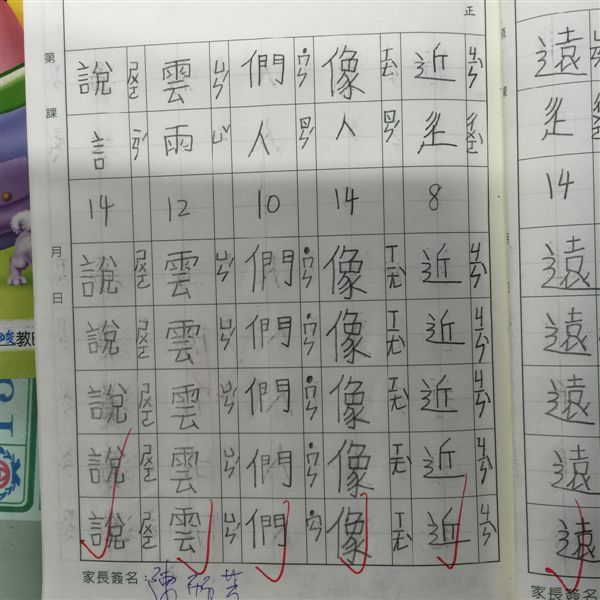 正
第 課 月 日
近 ㄐㄧㄣˋ
辵 ㄔㄨㄛˋ
8
近 ㄐㄧㄣˋ
近 ㄐㄧㄣˋ
近 ㄐㄧㄣˋ
近 ㄐㄧㄣˋ
近 ㄐㄧㄣˋ
像 ㄒㄧㄤˋ
人 ㄖㄣˊ
14
像 ㄒㄧㄤˋ
像 ㄒㄧㄤˋ
像 ㄒㄧㄤˋ
像 ㄒㄧㄤˋ
像 ㄒㄧㄤˋ
們 ˙ㄇㄣ
人 ㄖㄣˊ
10
們 ˙ㄇㄣ
們 ˙ㄇㄣ
們 ˙ㄇㄣ
們 ˙ㄇㄣ
們 ˙ㄇㄣ
雲 ㄩㄣˊ
雨 ㄩˇ
12
雲 ㄩㄣˊ
雲 ㄩㄣˊ
雲 ㄩㄣˊ
雲 ㄩㄣˊ
雲 ㄩㄣˊ
說 ㄕㄨㄛ
言 ㄧㄢˊ
14
說 ㄕㄨㄛ
說 ㄕㄨㄛ
說 ㄕㄨㄛ
說 ㄕㄨㄛ
說 ㄕㄨㄛ
家長簽名：
遠
辵
14
遠
遠
遠
遠
遠
家長簽名：